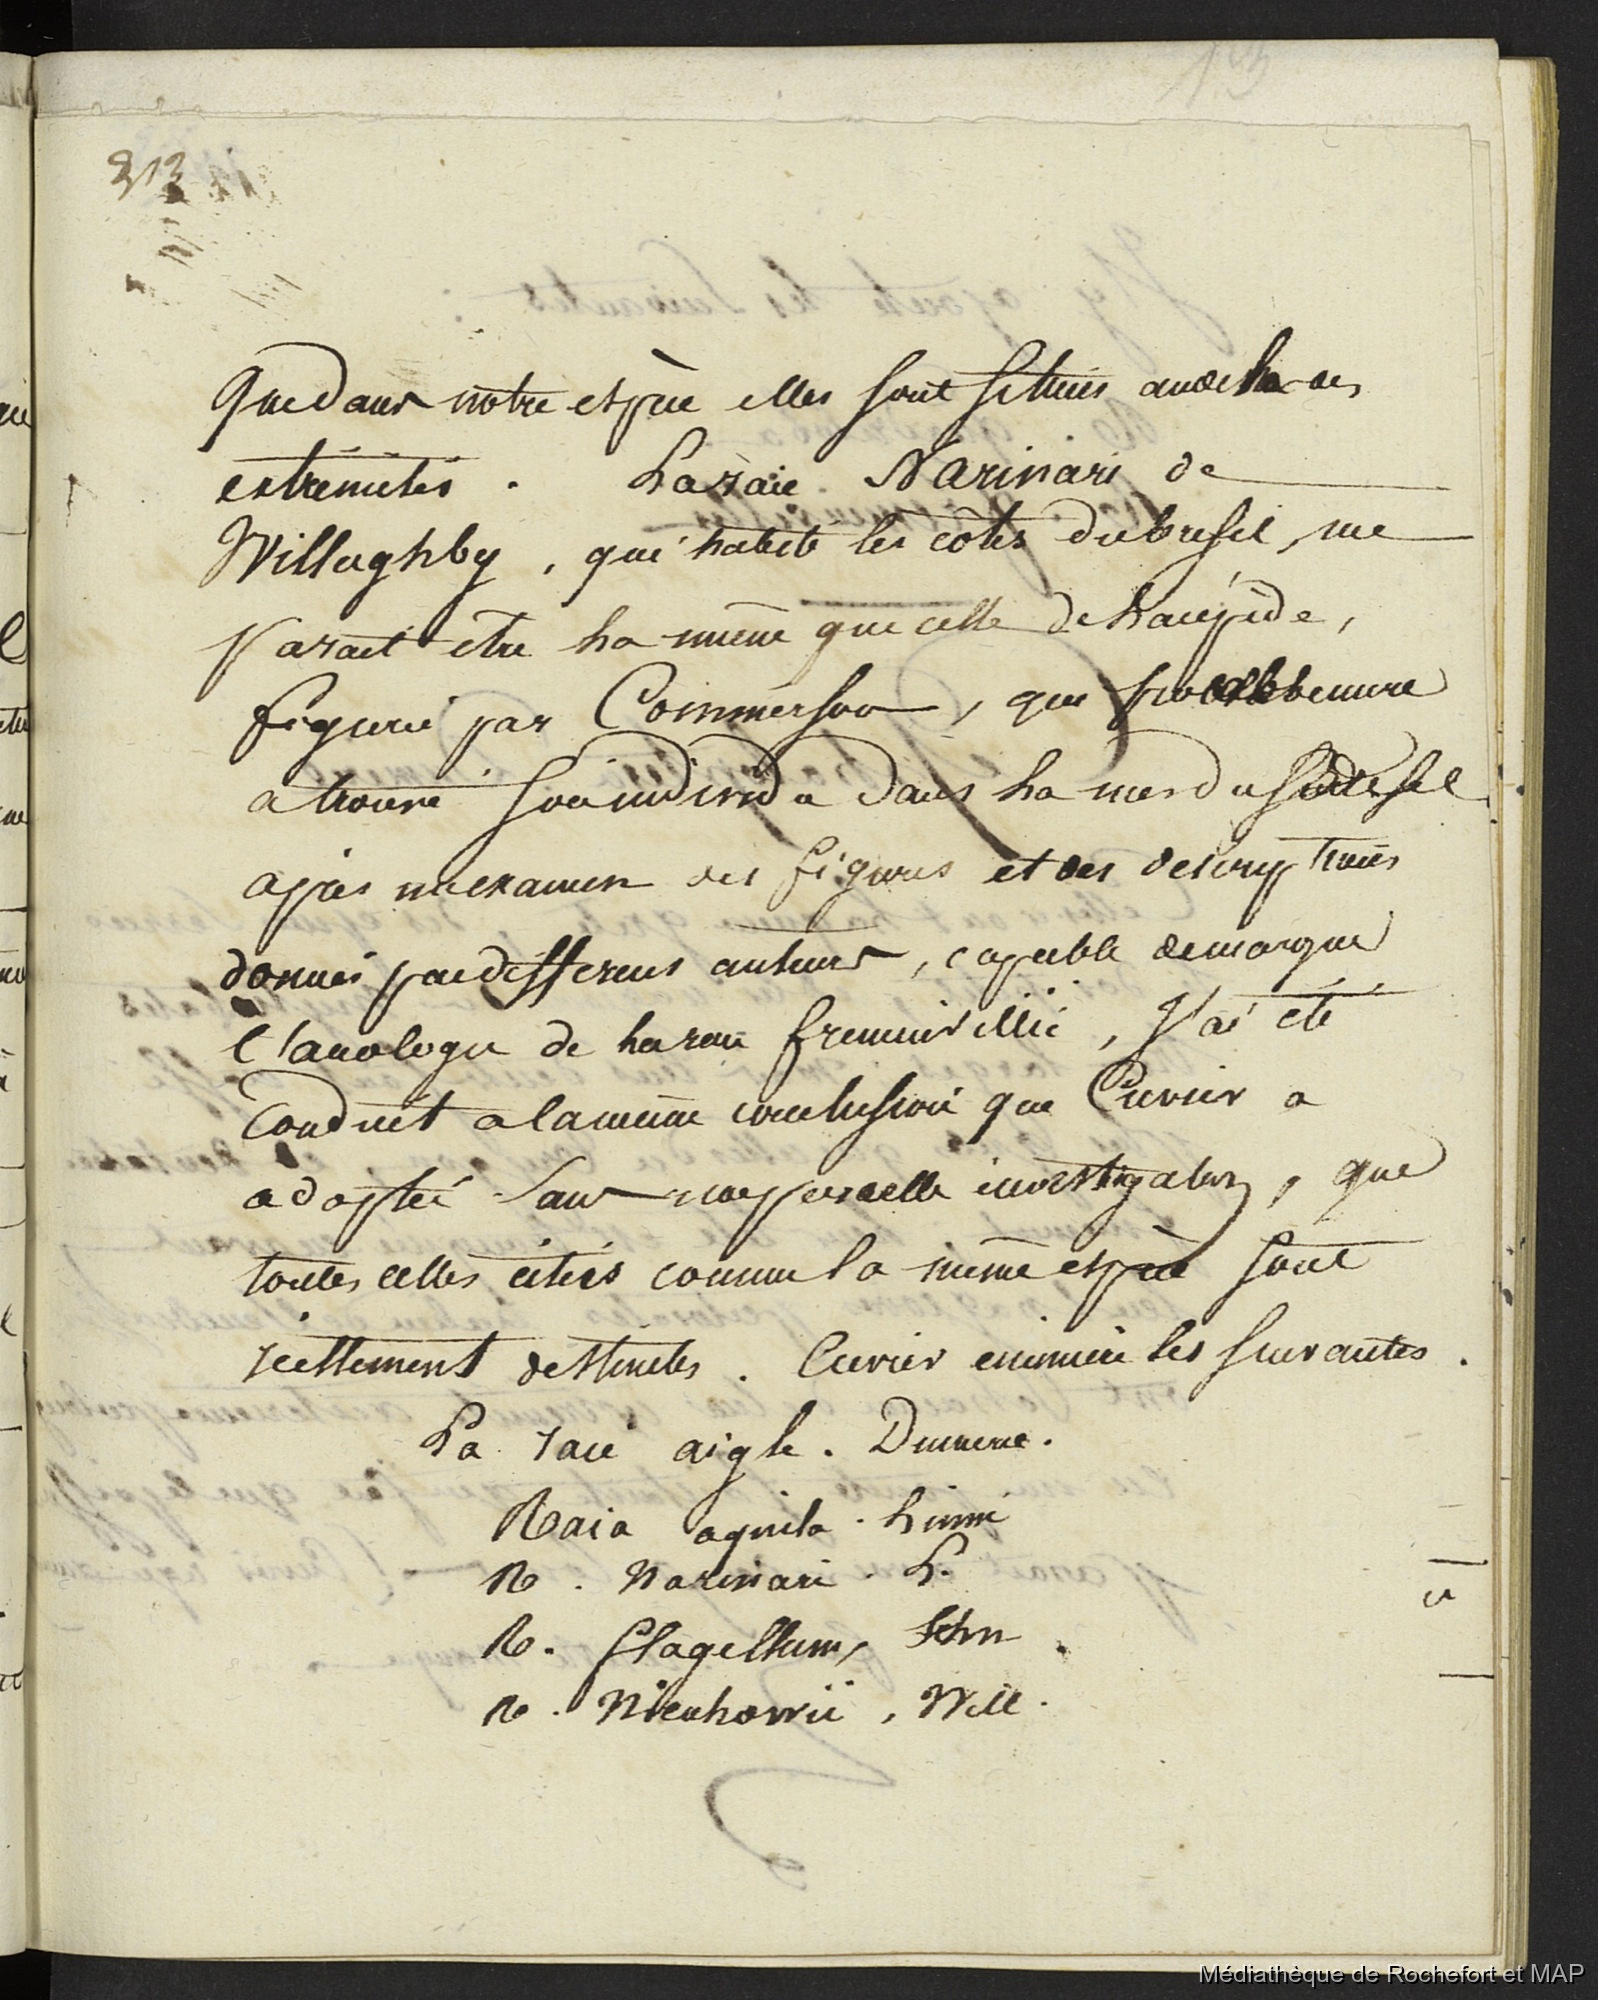 313
que dans notre espèce elles sont situées audela des
extrémités. La raie Narinari de
Willughby, qui habite les côtes du brésil, me
parait être la même que celle de Lacépède,
figurée par Commerson, que probablement
a trouvé son individu dans la mer du sud
après un examen des figures et des descriptions
données par differens auteurs, capable de marquer
l'analogie de la raie freminvillii, j'ai été
conduit a la même conclusion que Cuvier a
adopté sans investigation, que
toutes celles citées comme la même espèce sont
réellement destinctes. Cuvier enumère les suivantes.
La raie aigle. Dumeril.
Raia aquila. Linné
R. Narinari. L.
R. flagellum, Schn
R. Nieuhowii, Will.
Médiathèque de Rochefort et MAP